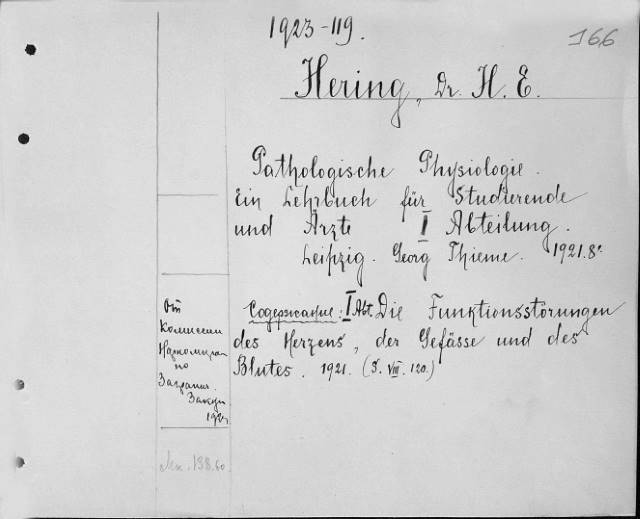 1923-119.
166
Hering, Dr. H. E.
Pathologische Physiologie.
Ein Lehrbuch für Studierende
und Ärzte I Abteilung.
Leipzig. Georg Thieme. 1921. 8°.
Содержание: I Abt. Die Funktionsstörungen
des Herzens, der Gefässe und des
Blutes. 1921. (S. VIII. 120.)
От
Комиссии
Наркомпрос
по
Загранич.
Закуп.
Мк. 138.60.